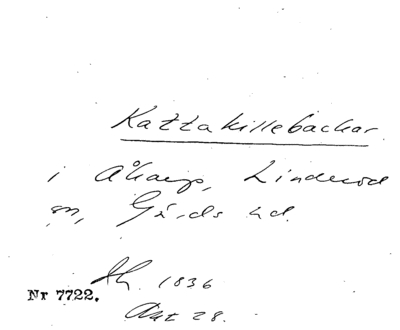 Kattakillebackar
i Åkarp, Linderöd
sn, Gärds hd.
Ak. 1836
Nr 7722.
Akt 28.